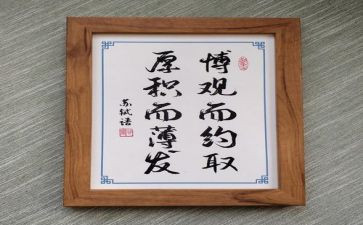 博观而约取
厚积而薄发
苏轼语